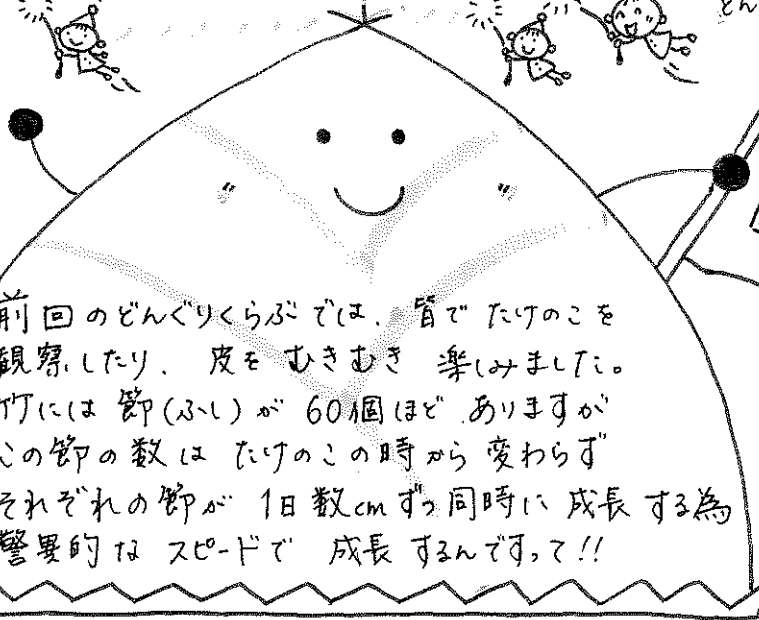 どん
前回のどんぐりくらぶでは、皆で たけのこを
観察したり、皮を むきむき 楽しみました。
竹には 節(ふし)が 60個ほど ありますが
この節の数は たけのこの時から 変わらず
それぞれの節が 1日数cmずつ同時に 成長 する為
驚異的な スピードで 成長 するんですって!!